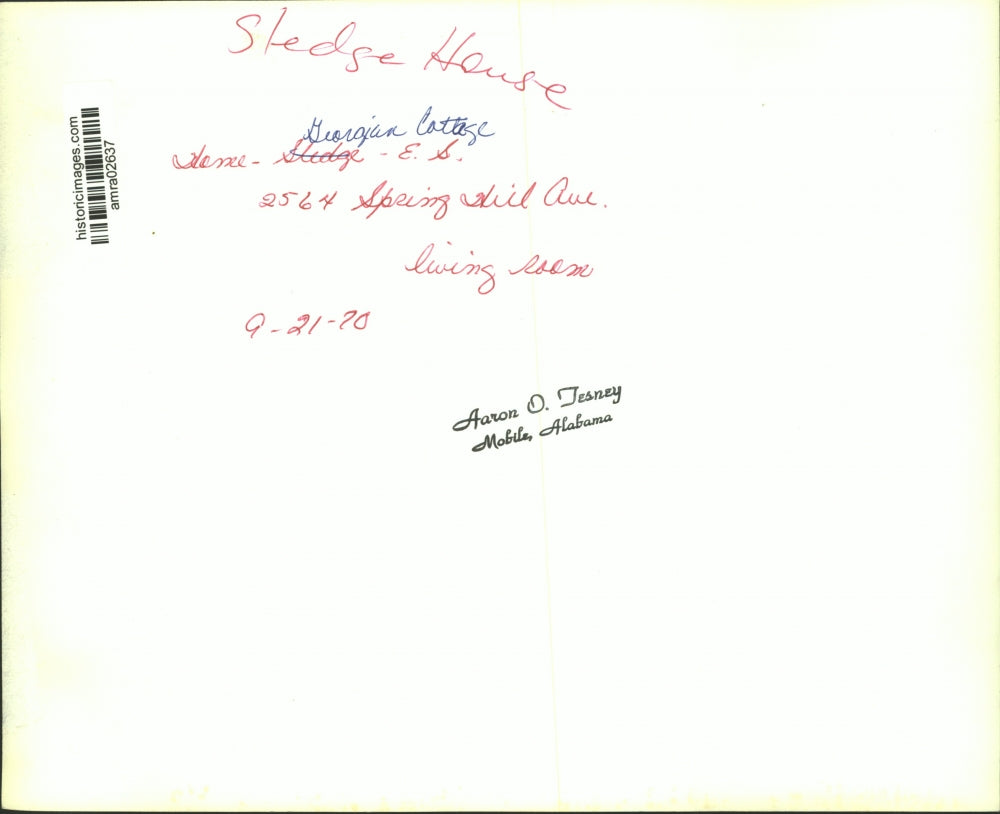 Sledge House
Georgian Cottage
Home - Sledge - E. S.
2564 Spring Hill Ave.
living room
9-21-70
Aaron O. Tesney
Mobile, Alabama
historicimages.com
amra02637